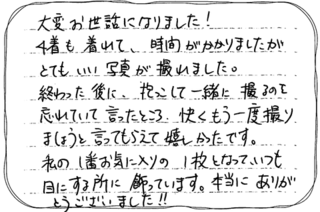 大変お世話になりました！
4着も着れて、時間がかかりましたが
とてもいい写真が撮れました。
終わった後に、抱っこして一緒に撮るのを
忘れていて言ったところ 快くもう一度撮り
ましょうと言ってもらえて嬉しかったです。
私の1番お気に入りの1枚となって、いつも
目にする所に飾っています。本当にありが
とうございました!!